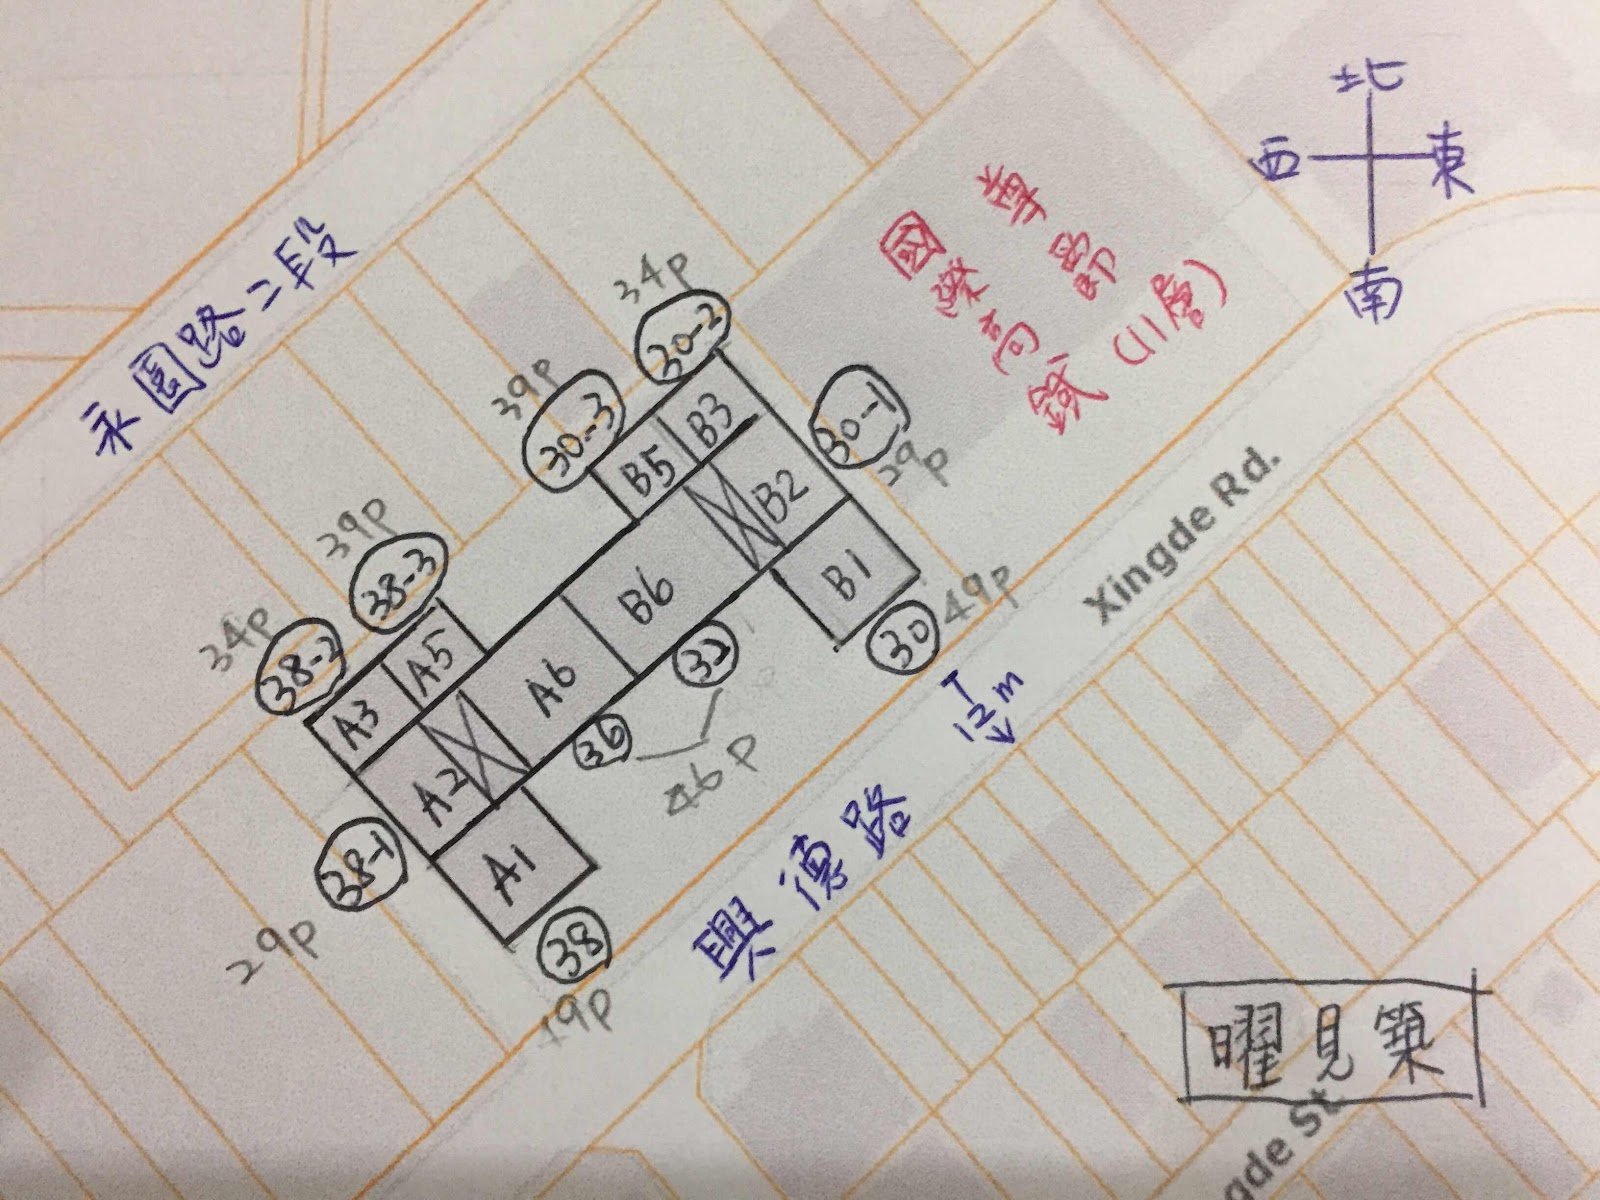 北
西
東
南
永園路二段
34p
30-2
39p
30-3
30-1
29p
B3
B5
B2
B6
B1
30
49p
32
39p
38-3
34p
38-2
A5
A3
A6
A2
A1
36
46p
38-1
29p
38
19p
12m
興德路
Xingde Rd.
(11層)
曜見築
gde St.